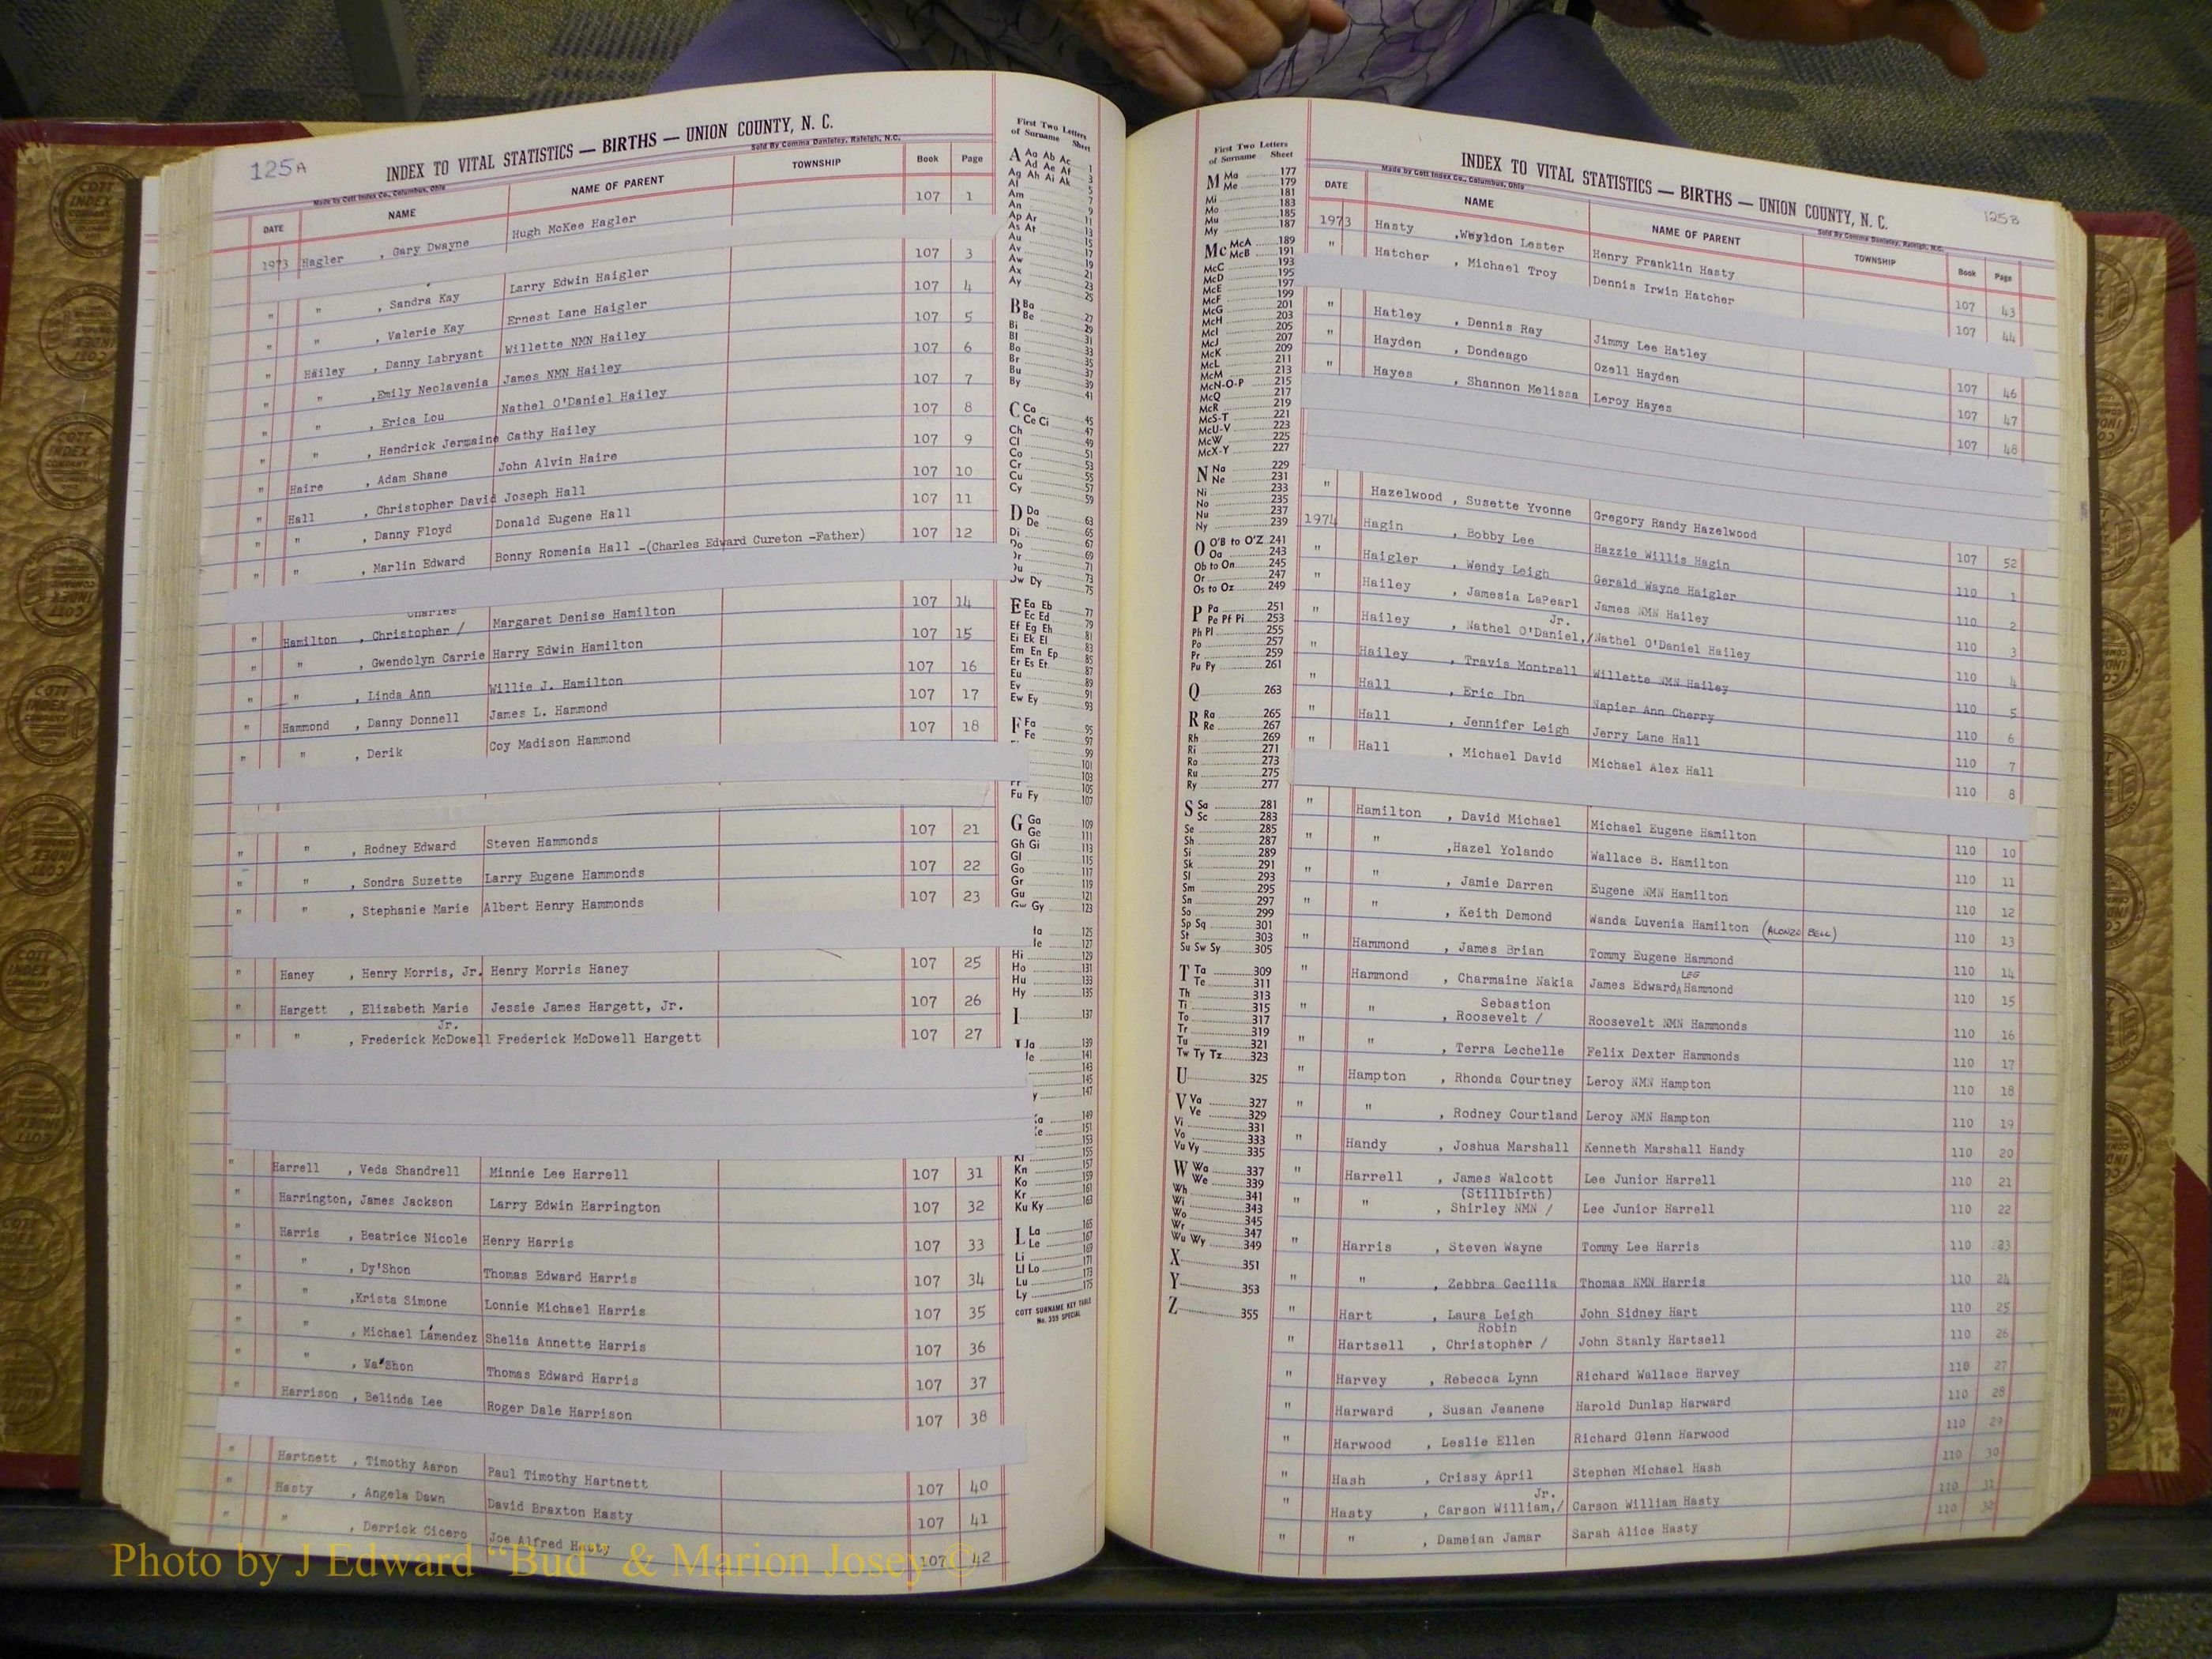 125A
INDEX TO VITAL STATISTICS — BIRTHS — UNION COUNTY, N. C.
Made by Cott Index Co., Columbus, Ohio
Sold By Comma Danieley, Raleigh, N.C.
DATE NAME NAME OF PARENT TOWNSHIP Book Page
1973 Hagler , Gary Dwayne Hugh McKee Hagler 107 1
" " , Sandra Kay Larry Edwin Haigler 107 3
" " , Valerie Kay Ernest Lane Haigler 107 4
" Hailey , Danny Labryant Willette NMN Hailey 107 5
" " ,Emily Neolavenia James NMN Hailey 107 6
" " , Erica Lou Nathel O'Daniel Hailey 107 7
" " , Hendrick Jermaine Cathy Hailey 107 8
" Haire , Adam Shane John Alvin Haire 107 9
" Hall , Christopher David Joseph Hall 107 10
" " , Danny Floyd Donald Eugene Hall 107 11
" " , Marlin Edward Bonny Romenia Hall -(Charles Edward Cureton -Father) 107 12
Charles
" Hamilton , Christopher / Margaret Denise Hamilton 107 14
" " , Gwendolyn Carrie Harry Edwin Hamilton 107 15
" " , Linda Ann Willie J. Hamilton 107 16
" Hammond , Danny Donnell James L. Hammond 107 17
" " , Derik Coy Madison Hammond 107 18
" " , Rodney Edward Steven Hammonds 107 21
" " , Sondra Suzette Larry Eugene Hammonds 107 22
" " , Stephanie Marie Albert Henry Hammonds 107 23
" Haney , Henry Morris, Jr. Henry Morris Haney 107 25
" Hargett , Elizabeth Marie Jessie James Hargett, Jr. 107 26
Jr.
" " , Frederick McDowell Frederick McDowell Hargett 107 27
" Harrell , Veda Shandrell Minnie Lee Harrell 107 31
" Harrington, James Jackson Larry Edwin Harrington 107 32
" Harris , Beatrice Nicole Henry Harris 107 33
" " , Dy'Shon Thomas Edward Harris 107 34
" " ,Krista Simone Lonnie Michael Harris 107 35
" " , Michael Lamendez Shelia Annette Harris 107 36
" " , Va'Shon Thomas Edward Harris 107 37
" Harrison , Belinda Lee Roger Dale Harrison 107 38
" Hartnett , Timothy Aaron Paul Timothy Hartnett 107 40
" Hasty , Angela Dawn David Braxton Hasty 107 41
" " , Derrick Cicero Joe Alfred Hasty 107 42
First Two Letters
of Surname Sheet
A Aa Ab Ac 1
Ad Ae Af 3
Ag Ah Ai Ak 5
Al 7
Am 9
An 11
Ap Ar 13
As At 15
Au 17
Av 19
Aw 21
Ax 23
Ay 25
B Ba 27
Be 29
Bi 31
Bl 33
Bo 35
Br 37
Bu 39
By 41
C Ca 45
Ce Ci 47
Ch 49
Cl 51
Co 53
Cr 55
Cu 57
Cy 59
D Da 63
De 65
Di 67
Do 69
Dr 71
Du 73
Dw Dy 75
E Ea Eb 77
Ec Ed 79
Ef Eg Eh 81
Ei Ek El 83
Em En Ep 85
Er Es Et 87
Eu 89
Ev 91
Ew Ey 93
F Fa 95
Fe 97
99
101
103
Fr 105
Fu Fy 107
G Ga 109
Ge 111
Gh Gi 113
Gl 115
Go 117
Gr 119
Gu 121
Gw Gy 123
Ha 125
He 127
Hi 129
Ho 131
Hu 133
Hy 135
I 137
J Ja 139
Je 141
143
145
y 147
Ka 149
Ke 151
153
Kl 155
Kn 157
Ko 159
Kr 161
Ku Ky 163
L La 165
Le 167
Li 169
Ll Lo 171
Lu 173
Ly 175
COTT SURNAME KEY TABLE
No. 355 SPECIAL
First Two Letters
of Surname Sheet
M Ma 177
Me 179
Mi 181
Mo 183
Mu 185
My 187
Mc McA 189
McB 191
McC 193
McD 195
McE 197
McF 199
McG 201
McH 203
McI 205
McJ 207
McK 209
McL 211
McM 213
McN-O-P 215
McQ 217
McR 219
McS-T 221
McU-V 223
McW 225
McX-Y 227
N Na 229
Ne 231
Ni 233
No 235
Nu 237
Ny 239
O O'B to O'Z 241
Oa 243
Ob to On 245
Or 247
Os to Oz 249
P Pa 251
Pe Pf Pi 253
Ph Pl 255
Po 257
Pr 259
Pu Py 261
Q 263
R Ra 265
Re 267
Rh 269
Ri 271
Ro 273
Ru 275
Ry 277
S Sa 281
Sc 283
Se 285
Sh 287
Si 289
Sk 291
Sl 293
Sm 295
Sn 297
So 299
Sp Sq 301
St 303
Su Sw Sy 305
T Ta 309
Te 311
Th 313
Ti 315
To 317
Tr 319
Tu 321
Tw Ty Tz 323
U 325
V Va 327
Ve 329
Vi 331
Vo 333
Vu Vy 335
W Wa 337
We 339
Wh 341
Wi 343
Wo 345
Wr 347
Wu Wy 349
X 351
Y 353
Z 355
125B
INDEX TO VITAL STATISTICS — BIRTHS — UNION COUNTY, N. C.
Made by Cott Index Co., Columbus, Ohio
Sold By Comma Danieley, Raleigh, N.C.
DATE NAME NAME OF PARENT TOWNSHIP Book Page
1973 Hasty ,Weyldon Lester Henry Franklin Hasty 107 43
" Hatcher , Michael Troy Dennis Irwin Hatcher 107 44
" Hatley , Dennis Ray Jimmy Lee Hatley 107 46
" Hayden , Dondeago Ozell Hayden 107 47
" Hayes , Shannon Melissa Leroy Hayes 107 48
" Hazelwood , Susette Yvonne Gregory Randy Hazelwood 107 52
1974 Hagin , Bobby Lee Hazzie Willis Hagin 110 1
" Haigler , Wendy Leigh Gerald Wayne Haigler 110 2
" Hailey , Jamesia LaPearl James NMN Hailey 110 3
Jr.
" Hailey , Nathel O'Daniel,/Nathel O'Daniel Hailey 110 4
" Hailey , Travis Montrell Willette NMN Hailey 110 5
" Hall , Eric Ibn Napier Ann Cherry 110 6
" Hall , Jennifer Leigh Jerry Lane Hall 110 7
" Hall , Michael David Michael Alex Hall 110 8
" Hamilton , David Michael Michael Eugene Hamilton 110 10
" " ,Hazel Yolando Wallace B. Hamilton 110 11
" " , Jamie Darren Eugene NMN Hamilton 110 12
" " , Keith Demond Wanda Luvenia Hamilton (ALONZO BELL) 110 13
" Hammond , James Brian Tommy Eugene Hammond 110 14
LEE
" Hammond , Charmaine Nakia James Edward Hammond 110 15
Sebastion
" " , Roosevelt / Roosevelt NMN Hammonds 110 16
" " , Terra Lechelle Felix Dexter Hammonds 110 17
" Hampton , Rhonda Courtney Leroy NMN Hampton 110 18
" " , Rodney Courtland Leroy NMN Hampton 110 19
" Handy , Joshua Marshall Kenneth Marshall Handy 110 20
" Harrell , James Walcott Lee Junior Harrell 110 21
(Stillbirth)
" " , Shirley NMN / Lee Junior Harrell 110 22
" Harris , Steven Wayne Tommy Lee Harris 110 23
" " , Zebbra Cecilia Thomas NMN Harris 110 24
" Hart , Laura Leigh John Sidney Hart 110 25
Robin
" Hartsell , Christopher / John Stanly Hartsell 110 26
" Harvey , Rebecca Lynn Richard Wallace Harvey 110 27
" Harward , Susan Jeanene Harold Dunlap Harward 110 28
" Harwood , Leslie Ellen Richard Glenn Harwood 110 29
" Hash , Crissy April Stephen Michael Hash 110 30
Jr.
" Hasty , Carson William,/ Carson William Hasty 110 31
" " , Dameian Jamar Sarah Alice Hasty 110 32
Photo by J Edward "Bud" & Marion Josey ©